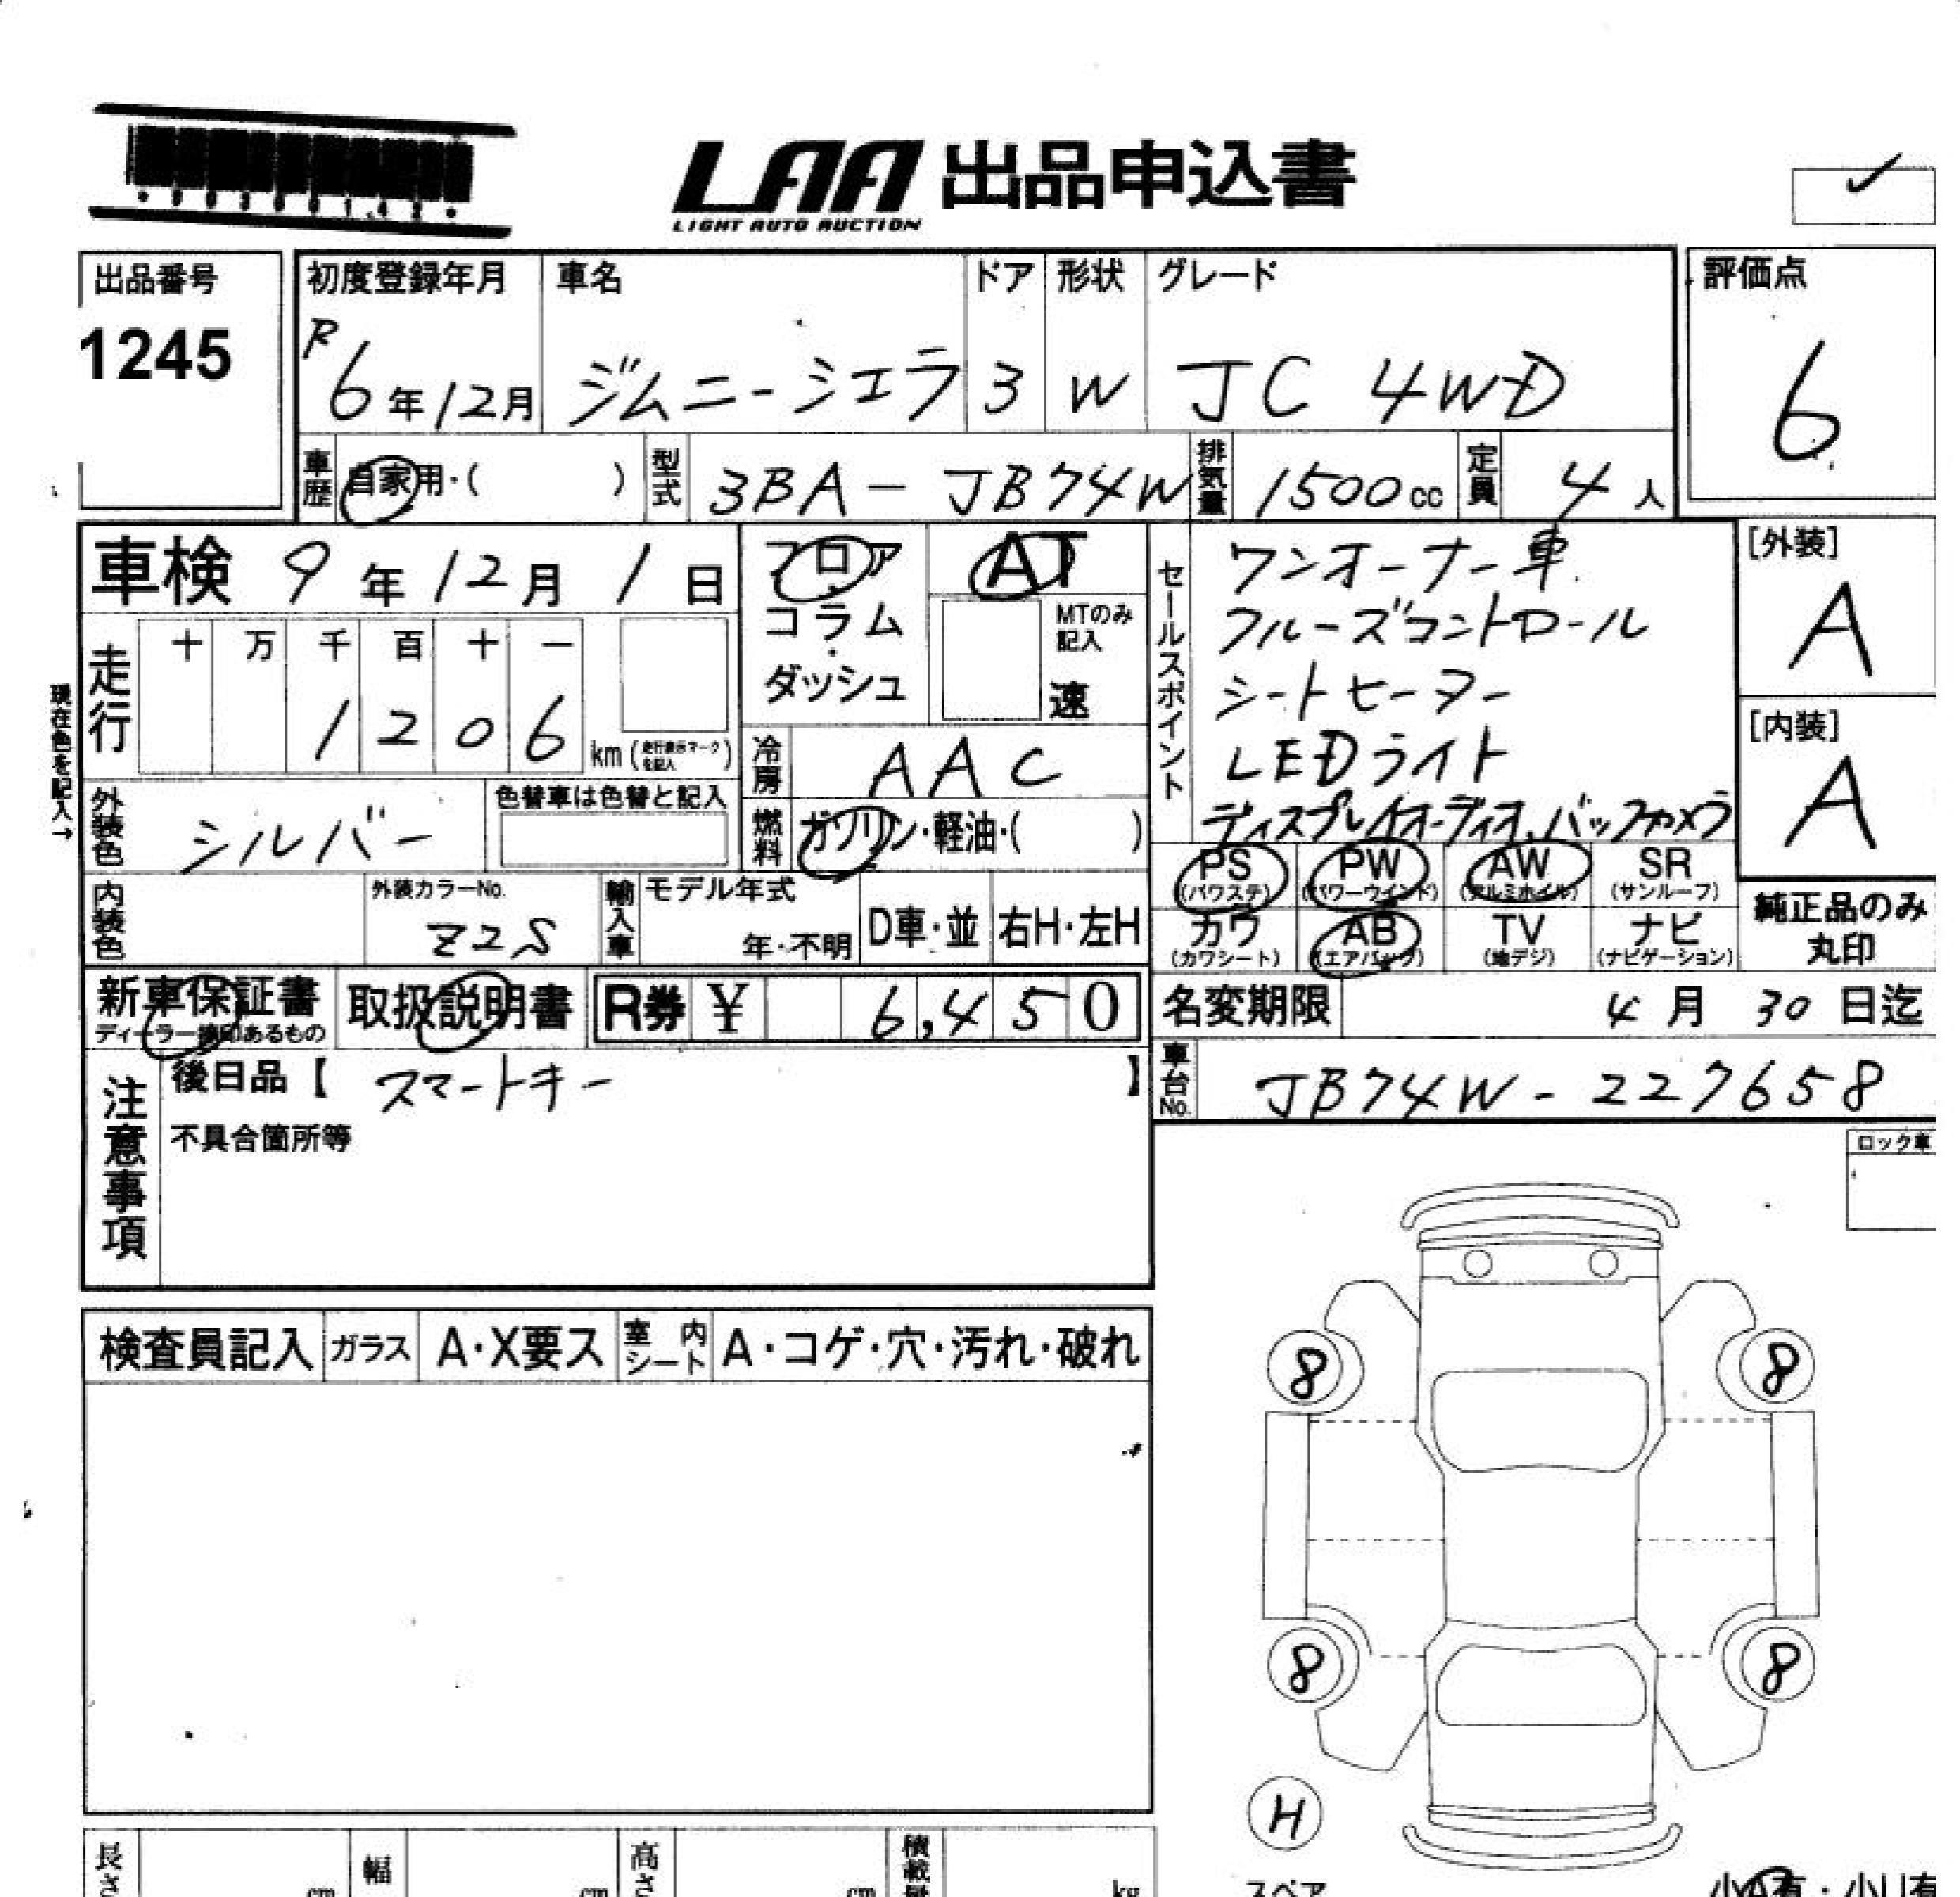 LAA 出品申込書
LIGHT AUTO AUCTION
出品番号
1245
初度登録年月
R6年12月
車名
ジムニーシエラ
ドア
3
形状
W
グレード
JC 4WD
評価点
6
車歴
自家用・( )
型式
3BA-JB74W
排気量
1500cc
定員
4人
車検 9年12月1日
フロア
・
コラム
・
ダッシュ
AT
MTのみ
記入
速
セールスポイント
ワンオーナー車
クルーズコントロール
シートヒーター
LEDライト
ディスプレイオーディオ、バックカメラ
[外装]
A
[内装]
A
現在色を記入→
走行
十 万 千 百 十 一
1206
km(走行表示マークを記入)
冷房
AAC
外装色
シルバー
色替車は色替と記入
燃料
ガソリン・軽油・( )
PS
(パワステ)
PW
(パワーウインド)
AW
(アルミホイル)
SR
(サンルーフ)
カワ
(カワシート)
AB
(エアバック)
TV
(地デジ)
ナビ
(ナビゲーション)
純正品のみ
丸印
内装色
外装カラーNo.
Z2S
輸入車
モデル年式
年・不明
D車・並
右H・左H
新車保証書
ディーラー捺印あるもの
取扱説明書
R券 ¥ 6,450
名変期限
4月30日迄
車台No.
JB74W-227658
注意事項
後日品【 スマートキー 】
不具合箇所等
ロック車
検査員記入
ガラス
A・X要ス
室内シート
A・コゲ・穴・汚れ・破れ
8
8
8
8
H
スペア
長さ
cm
幅
cm
高さ
cm
積載量
kg